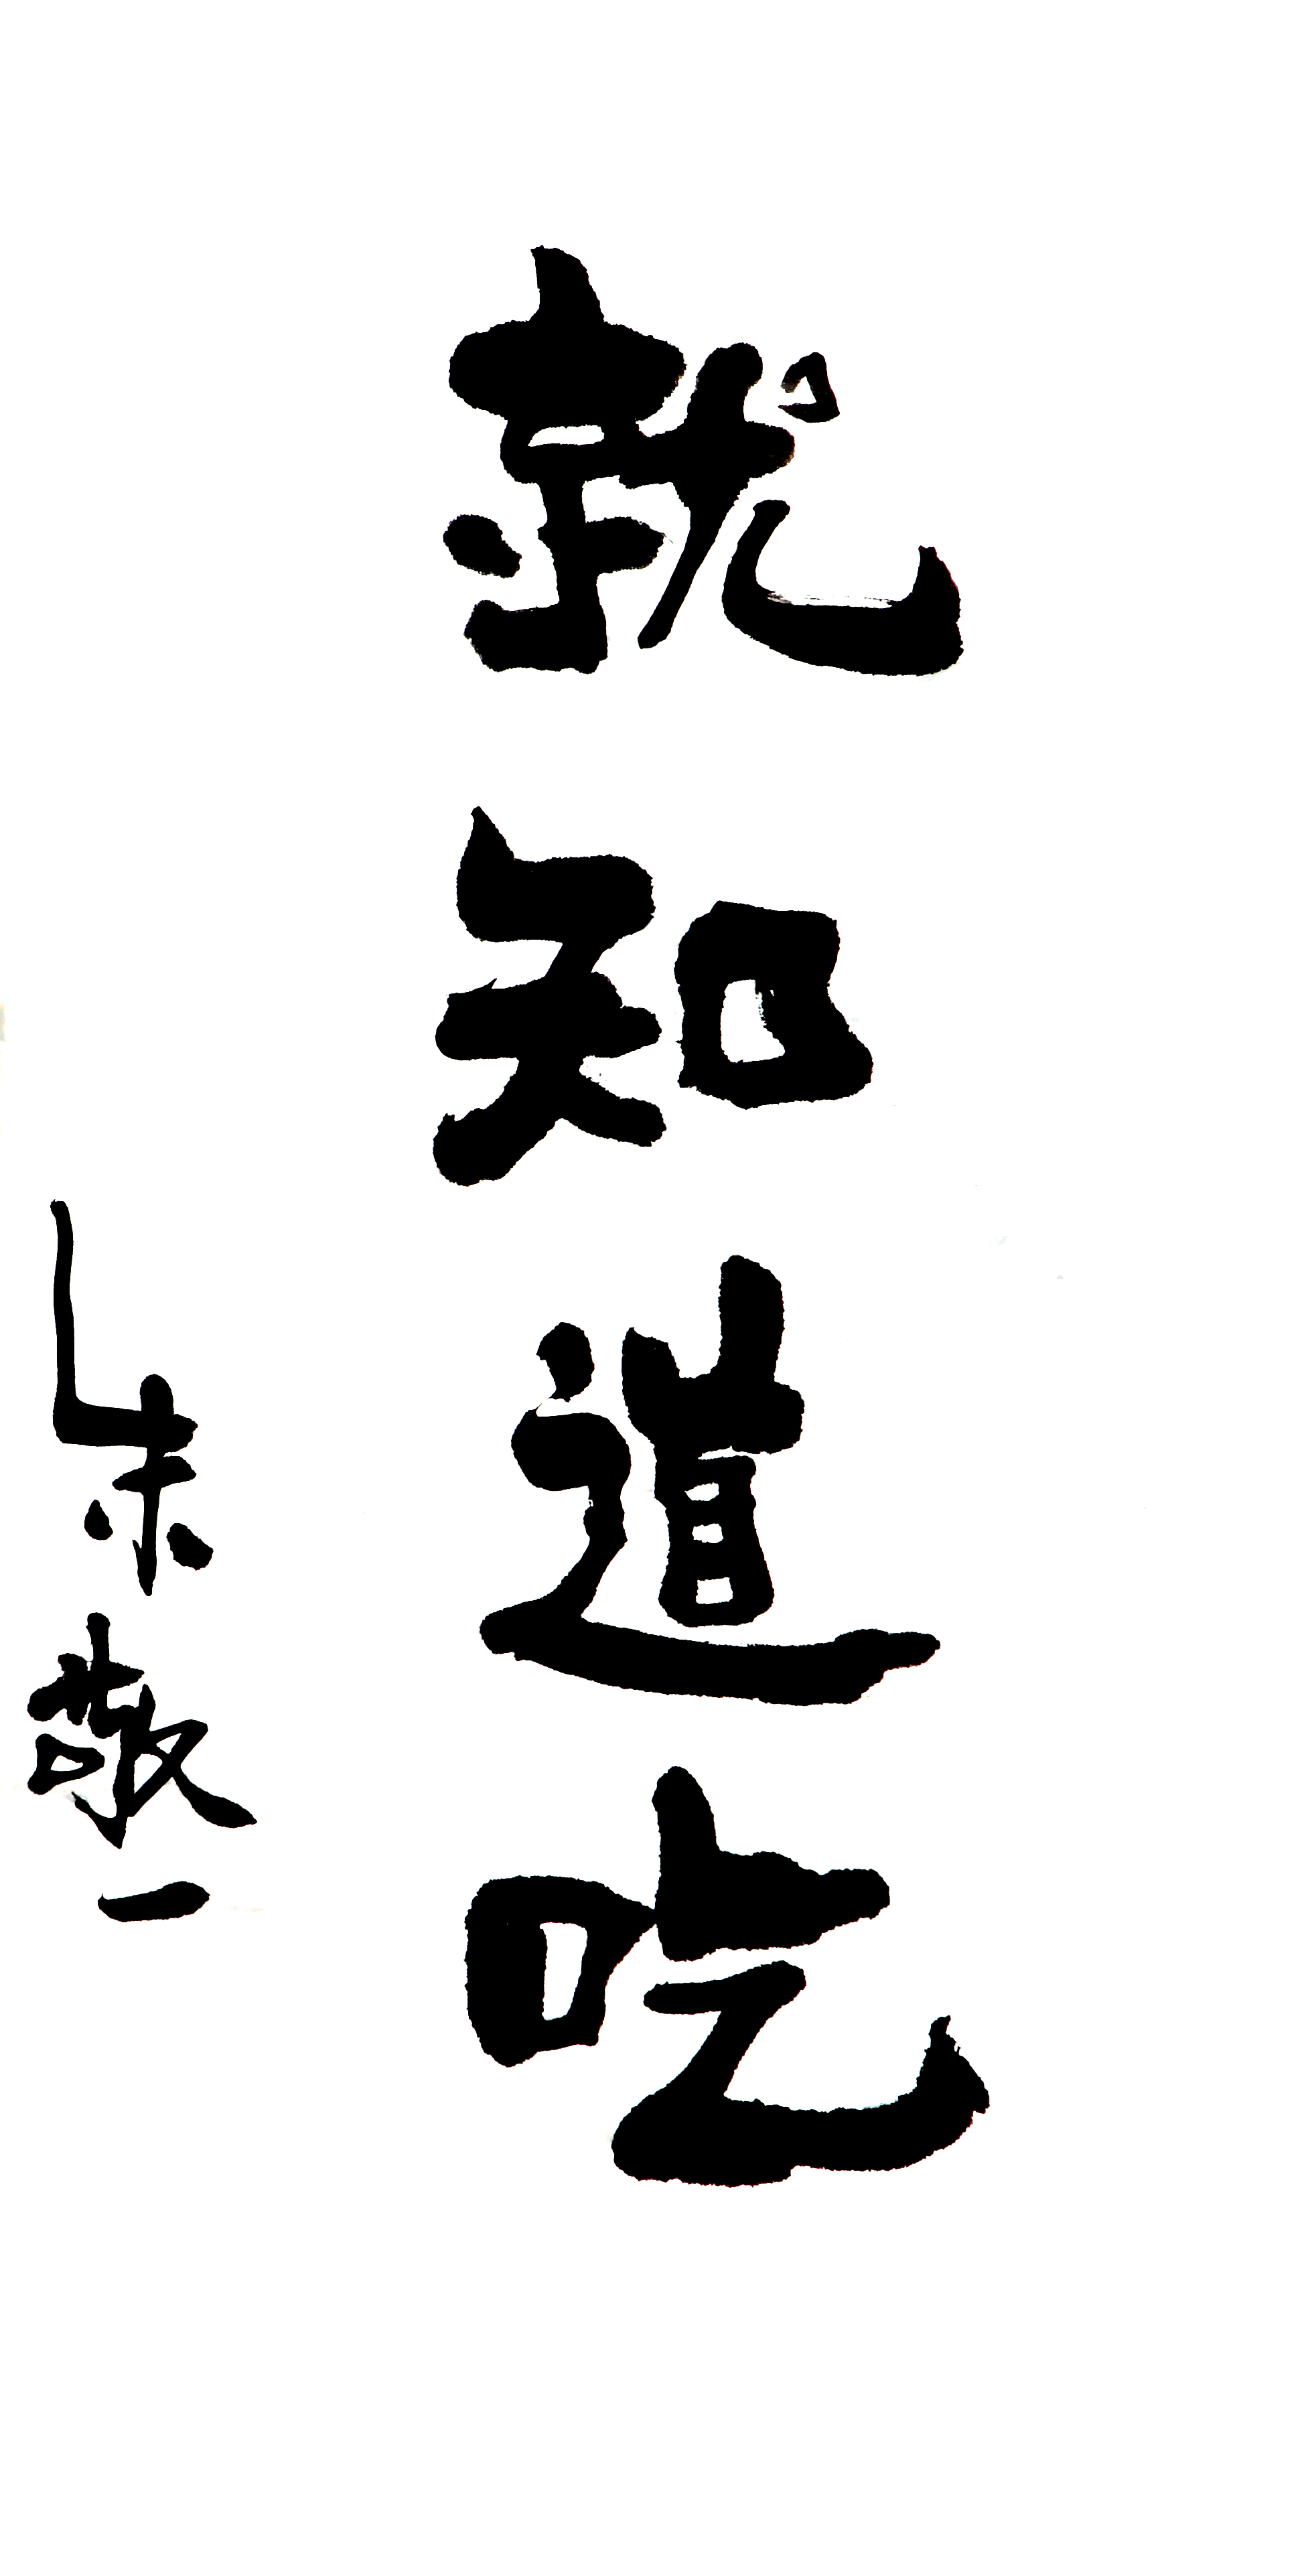 就知道吃
朱敬一